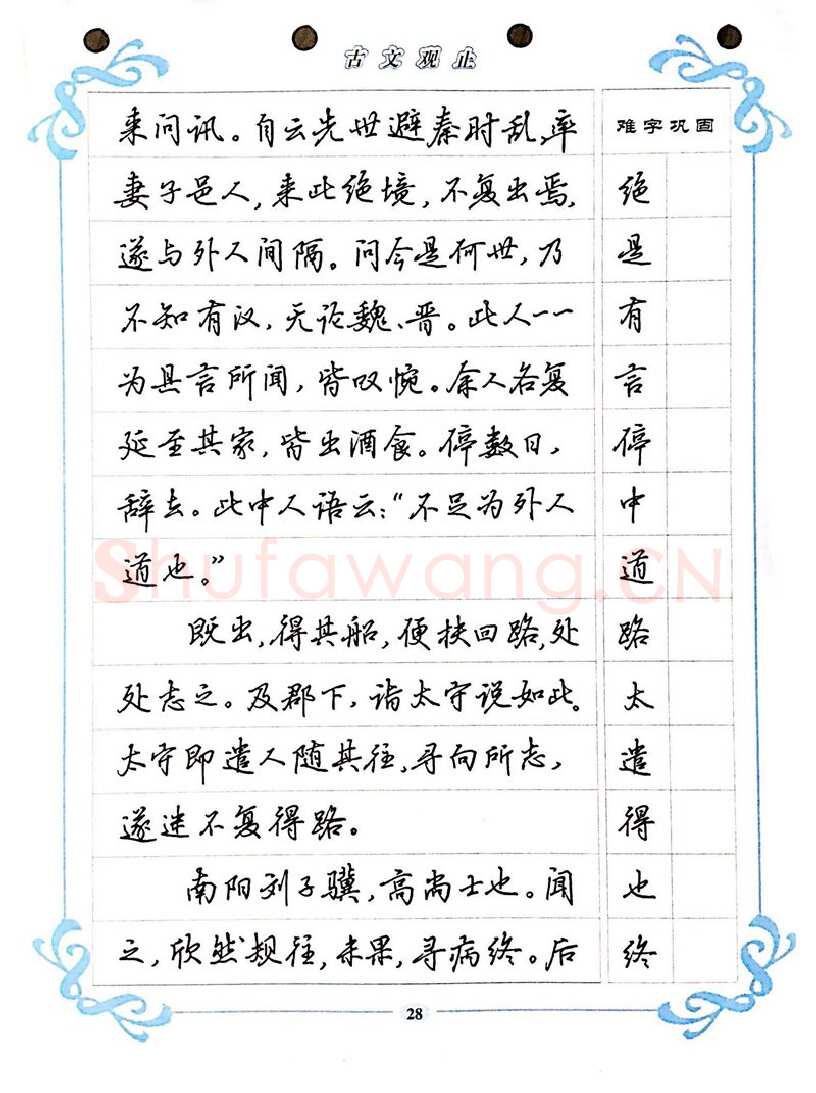 古文观止
来问讯。自云先世避秦时乱,率
妻子邑人,来此绝境,不复出焉,
遂与外人间隔。问今是何世,乃
不知有汉,无论魏、晋。此人一一
为具言所闻,皆叹惋。余人各复
延至其家,皆出酒食。停数日,
辞去。此中人语云:“不足为外人
道也。”
既出,得其船,便扶回路,处
处志之。及郡下,诣太守说如此。
太守即遣人随其往,寻向所志,
遂迷不复得路。
南阳刘子骥,高尚士也。闻
之,欣然规往,未果,寻病终。后
难字巩固
绝
是
有
言
停
中
道
路
太
遣
得
也
终
28
Shufawang.CN